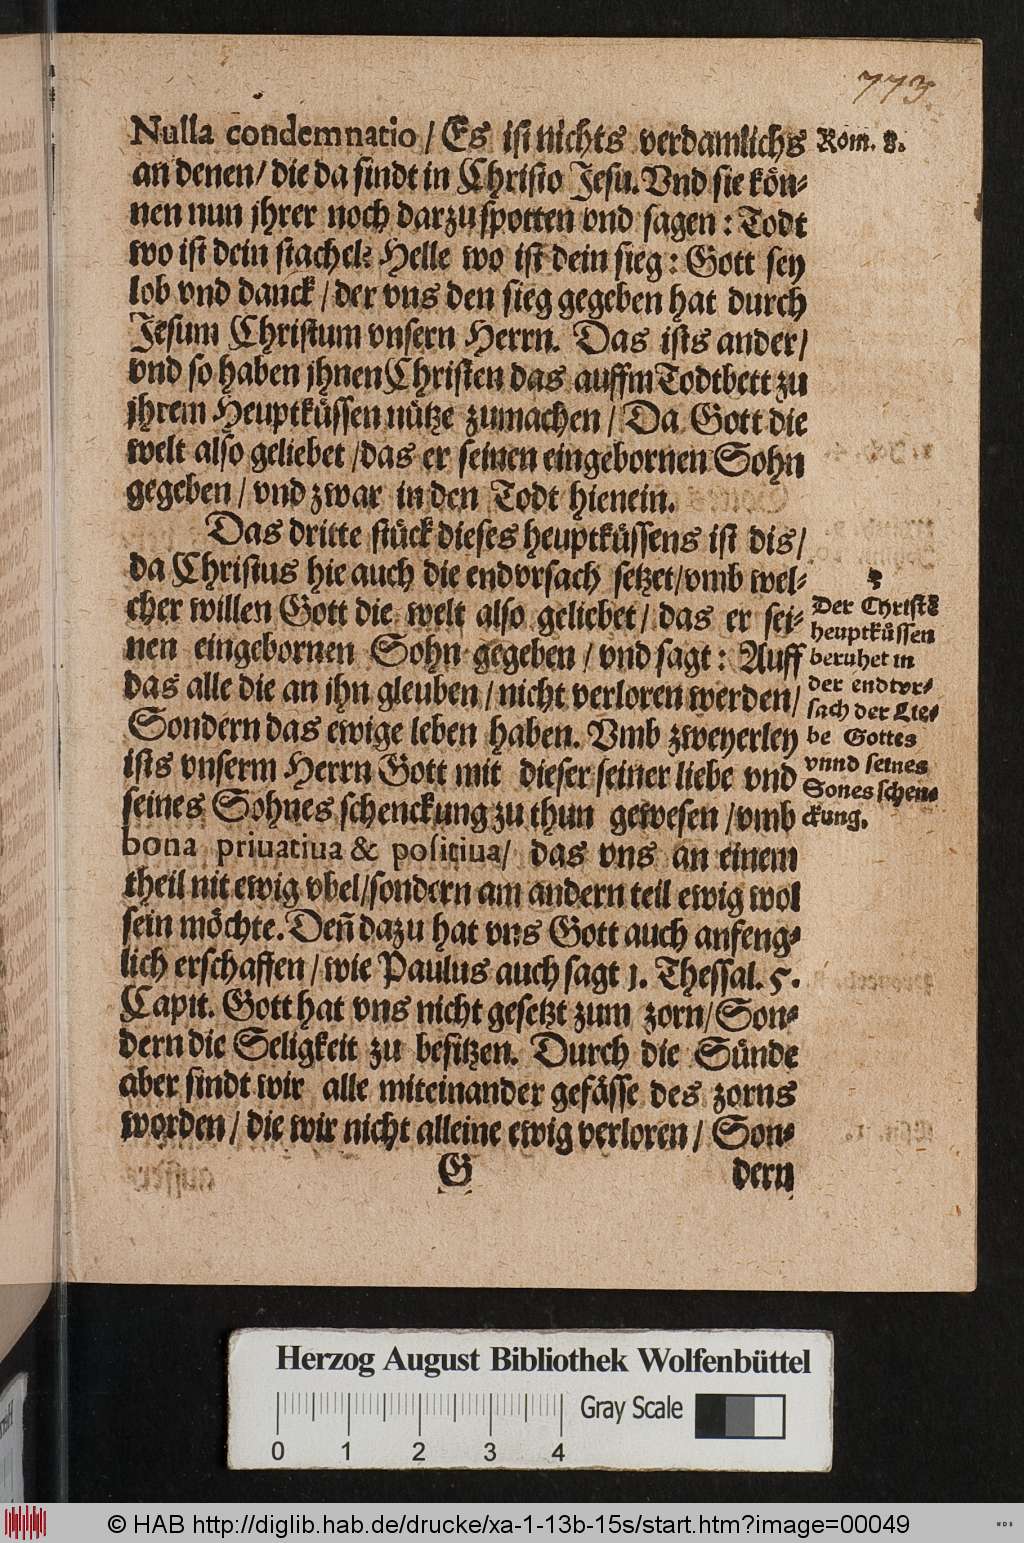 773.
Nulla condemnatio / Es ist nichts verdamlichs
Rom. 8.
an denen / die da sindt in Christo Jesu. Vnd sie kön-
nen nun jhrer noch darzu spotten vnd sagen : Todt
wo ist dein stachel? Helle wo ist dein sieg : Gott sey
lob vnd danck / der vns den sieg gegeben hat durch
Jesum Christum vnsern Herrn. Das ists ander /
vnd so haben jhnen Christen das auffm Todtbett zu
jhrem Heuptküssen nütze zumachen / Da Gott die
welt also geliebet / das er seinen eingebornen Sohn
gegeben / vnd zwar in den Todt hienein.
Das dritte stück dieses heuptküssens ist dis /
da Christus hie auch die endvrsach setzet / vmb wel-
cher willen Gott die welt also geliebet / das er sei-
nen eingebornen Sohn gegeben / vnd sagt : Auff
das alle die an jhn gleuben / nicht verloren werden /
Sondern das ewige leben haben. Vmb zweyerley
ists vnserm Herrn Gott mit dieser seiner liebe vnd
seines Sohnes schenckung zu thun gewesen / vmb
bona priuatiua & positiua / das vns an einem
theil nit ewig vbel / sondern am andern teil ewig wol
sein möchte. Deñ dazu hat vns Gott auch anfeng-
lich erschaffen / wie Paulus auch sagt 1. Thessal. 5.
Capit. Gott hat vns nicht gesetzt zum zorn / Son-
dern die Seligkeit zu besitzen. Durch die Sünde
aber sindt wir alle miteinander gefässe des zorns
worden / die wir nicht alleine ewig verloren / Son-
G
dern
3
Der Christẽ
heuptküssen
beruhet in
der endtvr-
sach der Lie-
be Gottes
vnnd seines
Sones schen-
ckung.
Herzog August Bibliothek Wolfenbüttel
0 1 2 3 4
Gray Scale
© HAB http://diglib.hab.de/drucke/xa-1-13b-15s/start.htm?image=00049
WDB